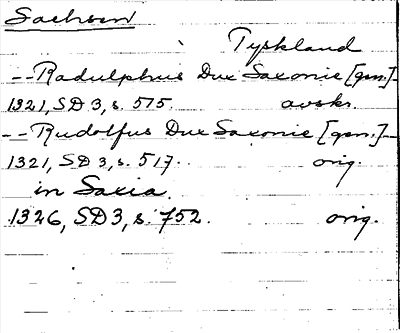 Sachsen
Tyskland
-- Radulphus Dux Saxonie [gen.] -
1321, SD 3, s. 515. avskr.
-- Rudolfus Dux Saxonie [gen.] --
1321, SD 3, s. 517. orig.
in Saxia.
1326, SD 3, s. 752. orig.